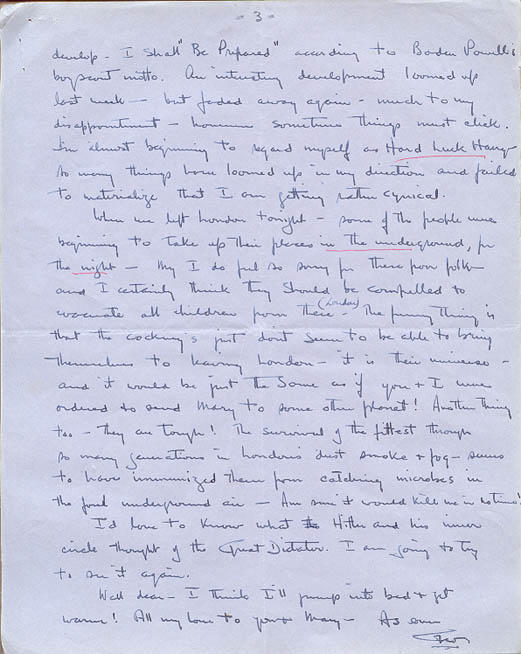 - 3 -
develop - I shall "Be Prepared" according to Baden Powell's
boyscout motto. An interesting development loomed up
last week - but faded away again - much to my
disappointment - however sometime things must click.
I'm almost beginning to regard myself as Hard Luck Harry -
so many things have loomed up in my direction and failed
to materialize that I am getting rather cynical.
When we left London tonight - some of the people were
beginning to take up their places in the underground, for
the night - My I do feel so sorry for these poor folk -
and I certainly think they should be compelled to
evacuate all children from there (London) - The funny thing is
that the cockney's just don't seem to be able to bring
themselves to leaving London - it is their universe -
and it would be just the same as if you + I were
ordered to send Mary to some other planet! Another thing
too - they are tough! The survival of the fittest through
so many generations in London's dust smoke + fog - seems
to have immunized them from catching microbes in
the foul underground air - Am sure it would kill me in no time!
I'd love to know what Hitler and his inner
circle thought of the Great Dictator. I am going to try
to see it again.
Well dear - I think I'll jump into bed + get
warm! All my love to you + Mary - As ever